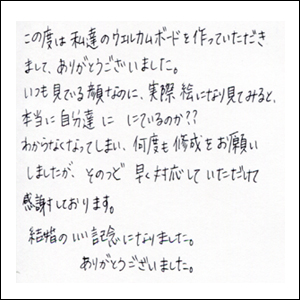 この度は私達のウェルカムボードを作っていただき
まして、ありがとうございました。
いつも見ている顔なのに、実際絵になり見てみると、
本当に自分達に にているのか??
わからなくなってしまい、何度も修成をお願い
しましたが、そのつど 早く対応していただけて
感謝しております。
結婚のいい記念になりました。
ありがとうございました。